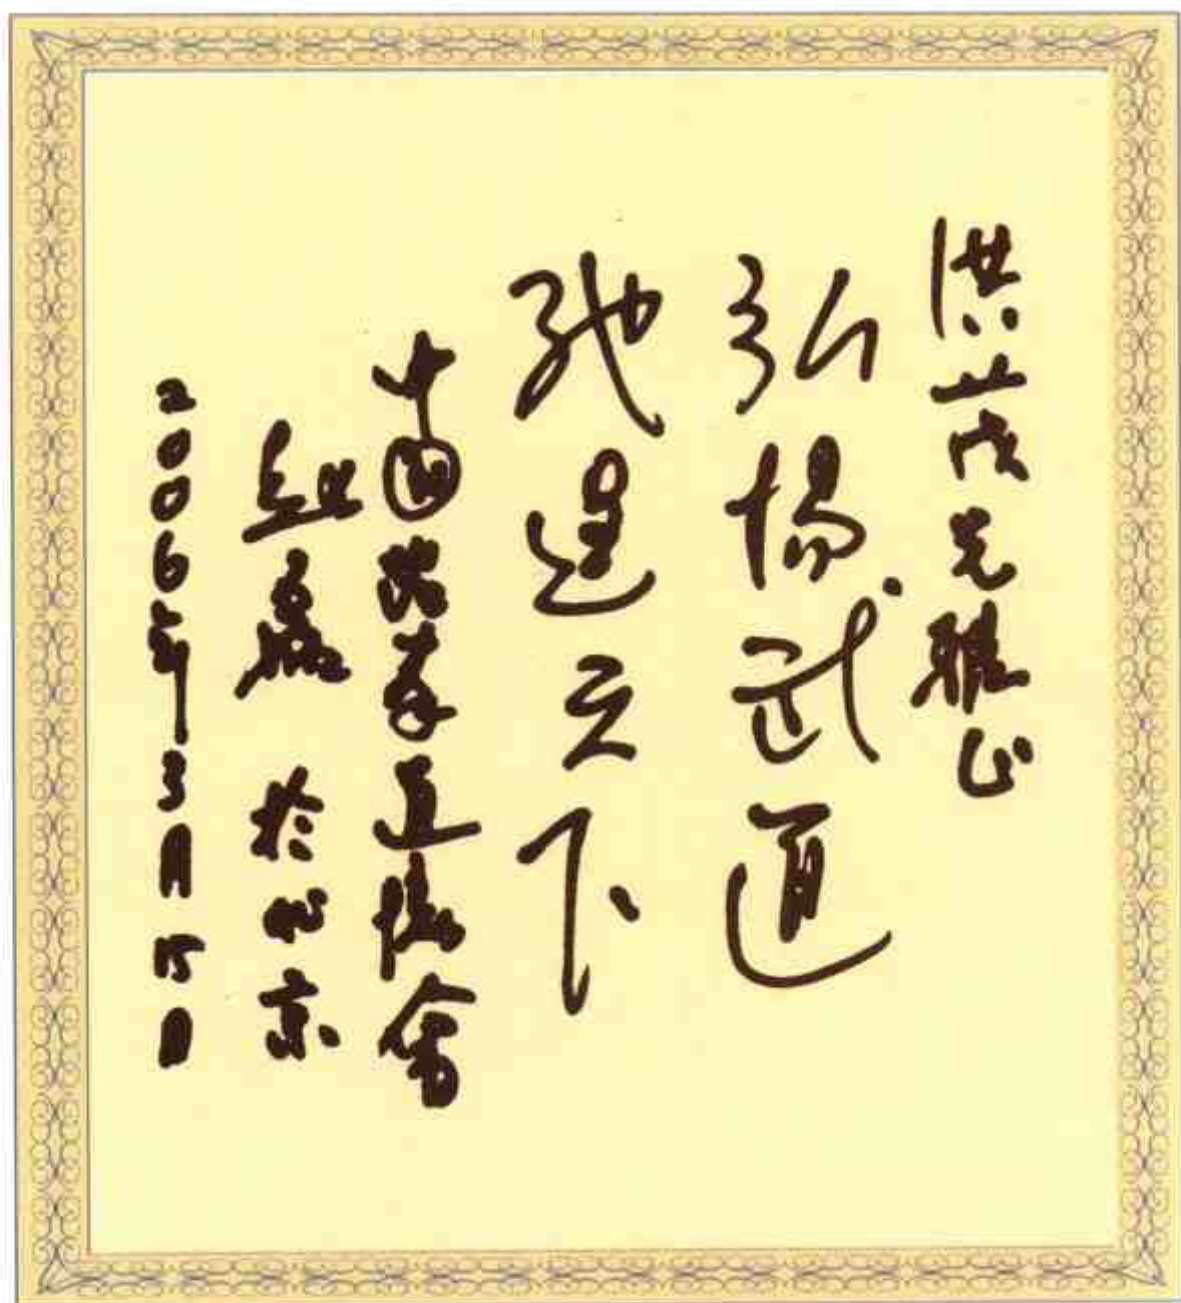 洪茂兄雅正
弘揚武道
天下
中國跆拳道協會
於北京
2006年3月15日